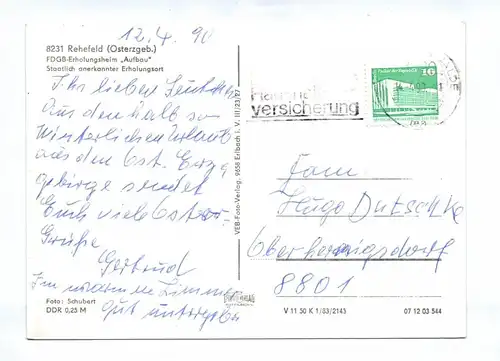 12.4.90
8231 Rehefeld (Osterzgeb.)
FDGB-Erholungsheim „Aufbau"
Staatlich anerkannter Erholungsort
Ihr lieben
Aus dem halb so
winterlichen Urlaub
aus dem Ost. Erz-
gebirge sendet
Euch viele Oster-
Grüße
Gertrud
Im warmen Zimmer
gut untergebr.
Foto: Schubert
DDR 0,25 M
VEB Foto-Verlag 9658 Erlbach i. V. III/23/27
versicherung
10
Fam.
Hugo Dutschke
Oberhennigsdorf
8801
V 11 50 K 1/83/2143
07 12 03 544